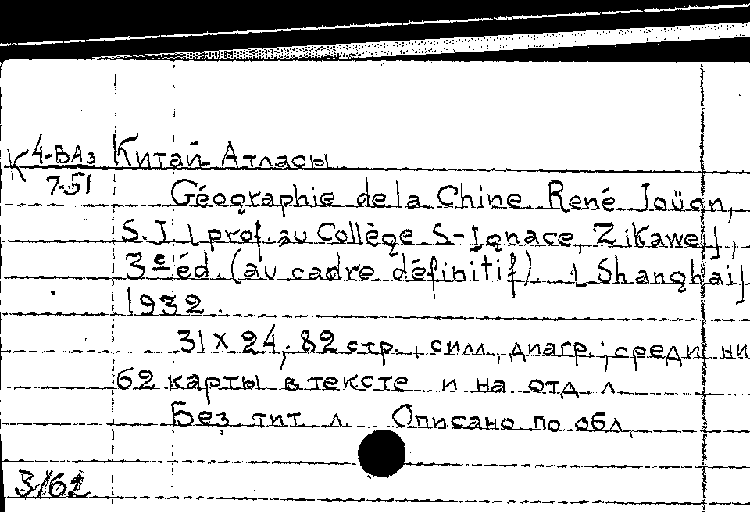 К 4-ВАз Китай- Атласы
7-51
Géographie de la Chine. René Joüon,
S.J. [prof. au Collège S-Ignace, Zikawei],
3e éd. (au cadre définitif). [Shanghai]
1932.
31 x 24, 82 стр., илл., диагр.; среди ни
62 карты в тексте и на отд. л.
Без тит. л. Описано по обл.
3/62